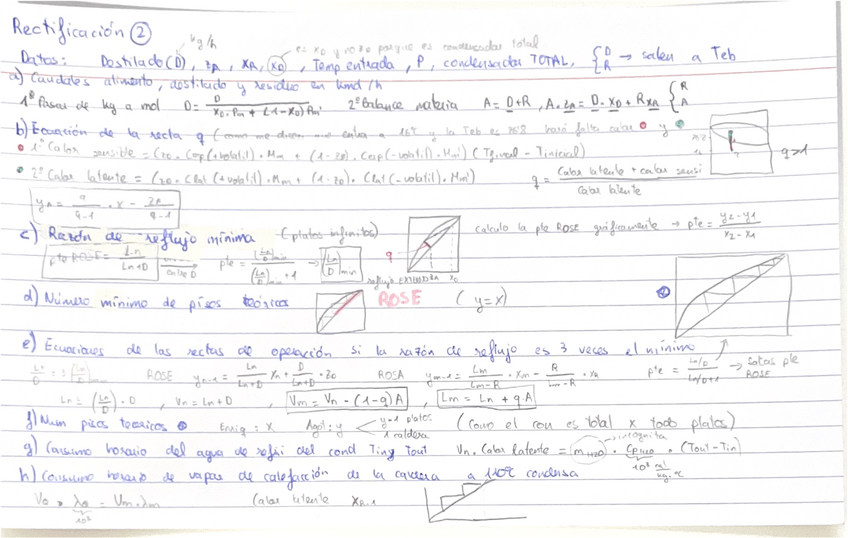 Rectificación ②
kg/h
Datos: Destilado (D), zA, xR, xD, Temp entrada, P, condensador TOTAL, { D R → salen a Teb
es xD y no yD porque es condensador total
a) Caudales alimento, destilado y residuo en kmol/h
1º Pasar de kg a mol D = D / (xD · Pm + (1-xD) Pm) 2º Balance materia A = D+R, A·zA = D·xD + R xR { R A
b) Ecuación de la recta q
1º Calor sensible = (z0 · Cesp (+volatil) · Mm + (1-z0) · Cesp (-volatil) · Mm) (Tfinal - Tinicial) q>1
2º Calor latente = (z0 · Clat (+volatil) · Mm + (1-z0) · Clat (-volatil) · Mm) q = (Calor latente + calor sensi) / Calor latente
yn = q/(q-1) · x - zA/(q-1)
c) Razón de reflujo mínima (platos infinitos) Calculo la pte ROSE gráficamente → pte = (y2-y1)/(x2-x1)
pte ROSE = Ln/(Ln+D) pte = (Ln/D)min / ((Ln/D)min + 1) → (Ln/D)min
d) Número mínimo de pisos teóricos ROSE (y=x)
e) Ecuaciones de las rectas de operación si la razón de reflujo es 3 veces el mínimo
ROSE yn-1 = Ln/(Ln+D) xn + D/(Ln+D) · z0 ROSA ym-1 = Lm/(Lm-R) · xm - R/(Lm-R) · xR pte = (Ln/D)/(Ln/D+1) → pte ROSE
Ln = (Ln/D) · D, Vn = Ln+D, Vm = Vn - (1-q)A, Lm = Ln + qA
f) Num pisos teoricos Enriq = x Agot = y < y-1 platos 1 caldera (Como el con es total x todo platos)
g) Consumo horario del agua de refri del cond Tin y Tout Vn · Calor latente = mH2O · CpH2O · (Tout-Tin)
incognita
10³ cal/kg·ºC
h) Consumo horario de vapor de calefacción de la caldera a 110ºC condensa
= Vm · λm Calor latente xR-1
10³